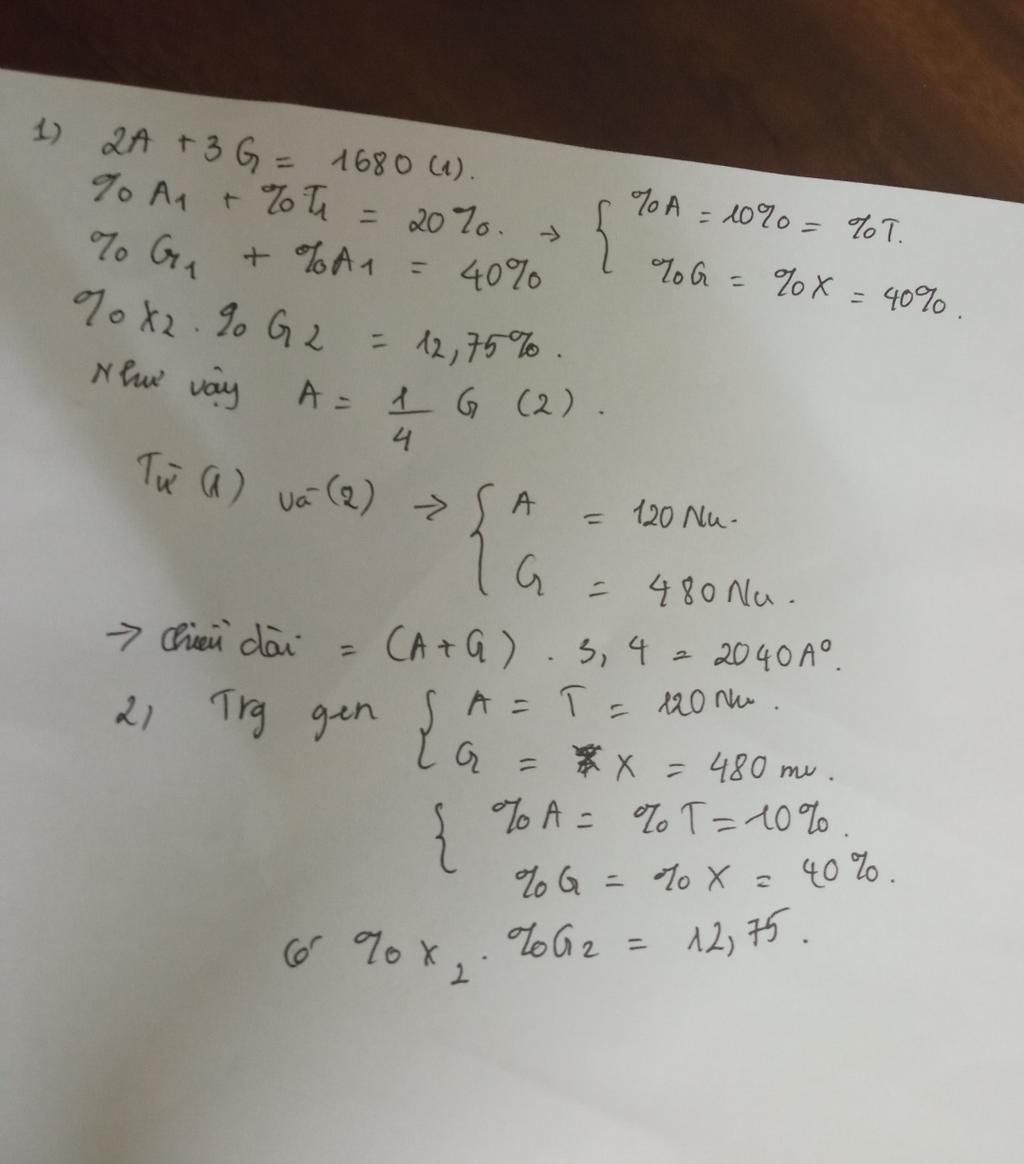 1) 2A + 3G = 1680 (1).
%A1 + %T1 = 20%. → { %A = 10% = %T.
%G1 + %A1 = 40% %G = %X = 40%.
%X2 . %G2 = 12,75%.
Như vậy A = 1/4 G (2).
Từ (1) và (2) → { A = 120 Nu.
G = 480 Nu.
→ Chiều dài = (A + G) . 3,4 = 2040A°.
2, Trg gen { A = T = 120 Nu.
G = X = 480 nu.
{ %A = %T = 10%.
%G = %X = 40%.
Có %X2 . %G2 = 12,75.